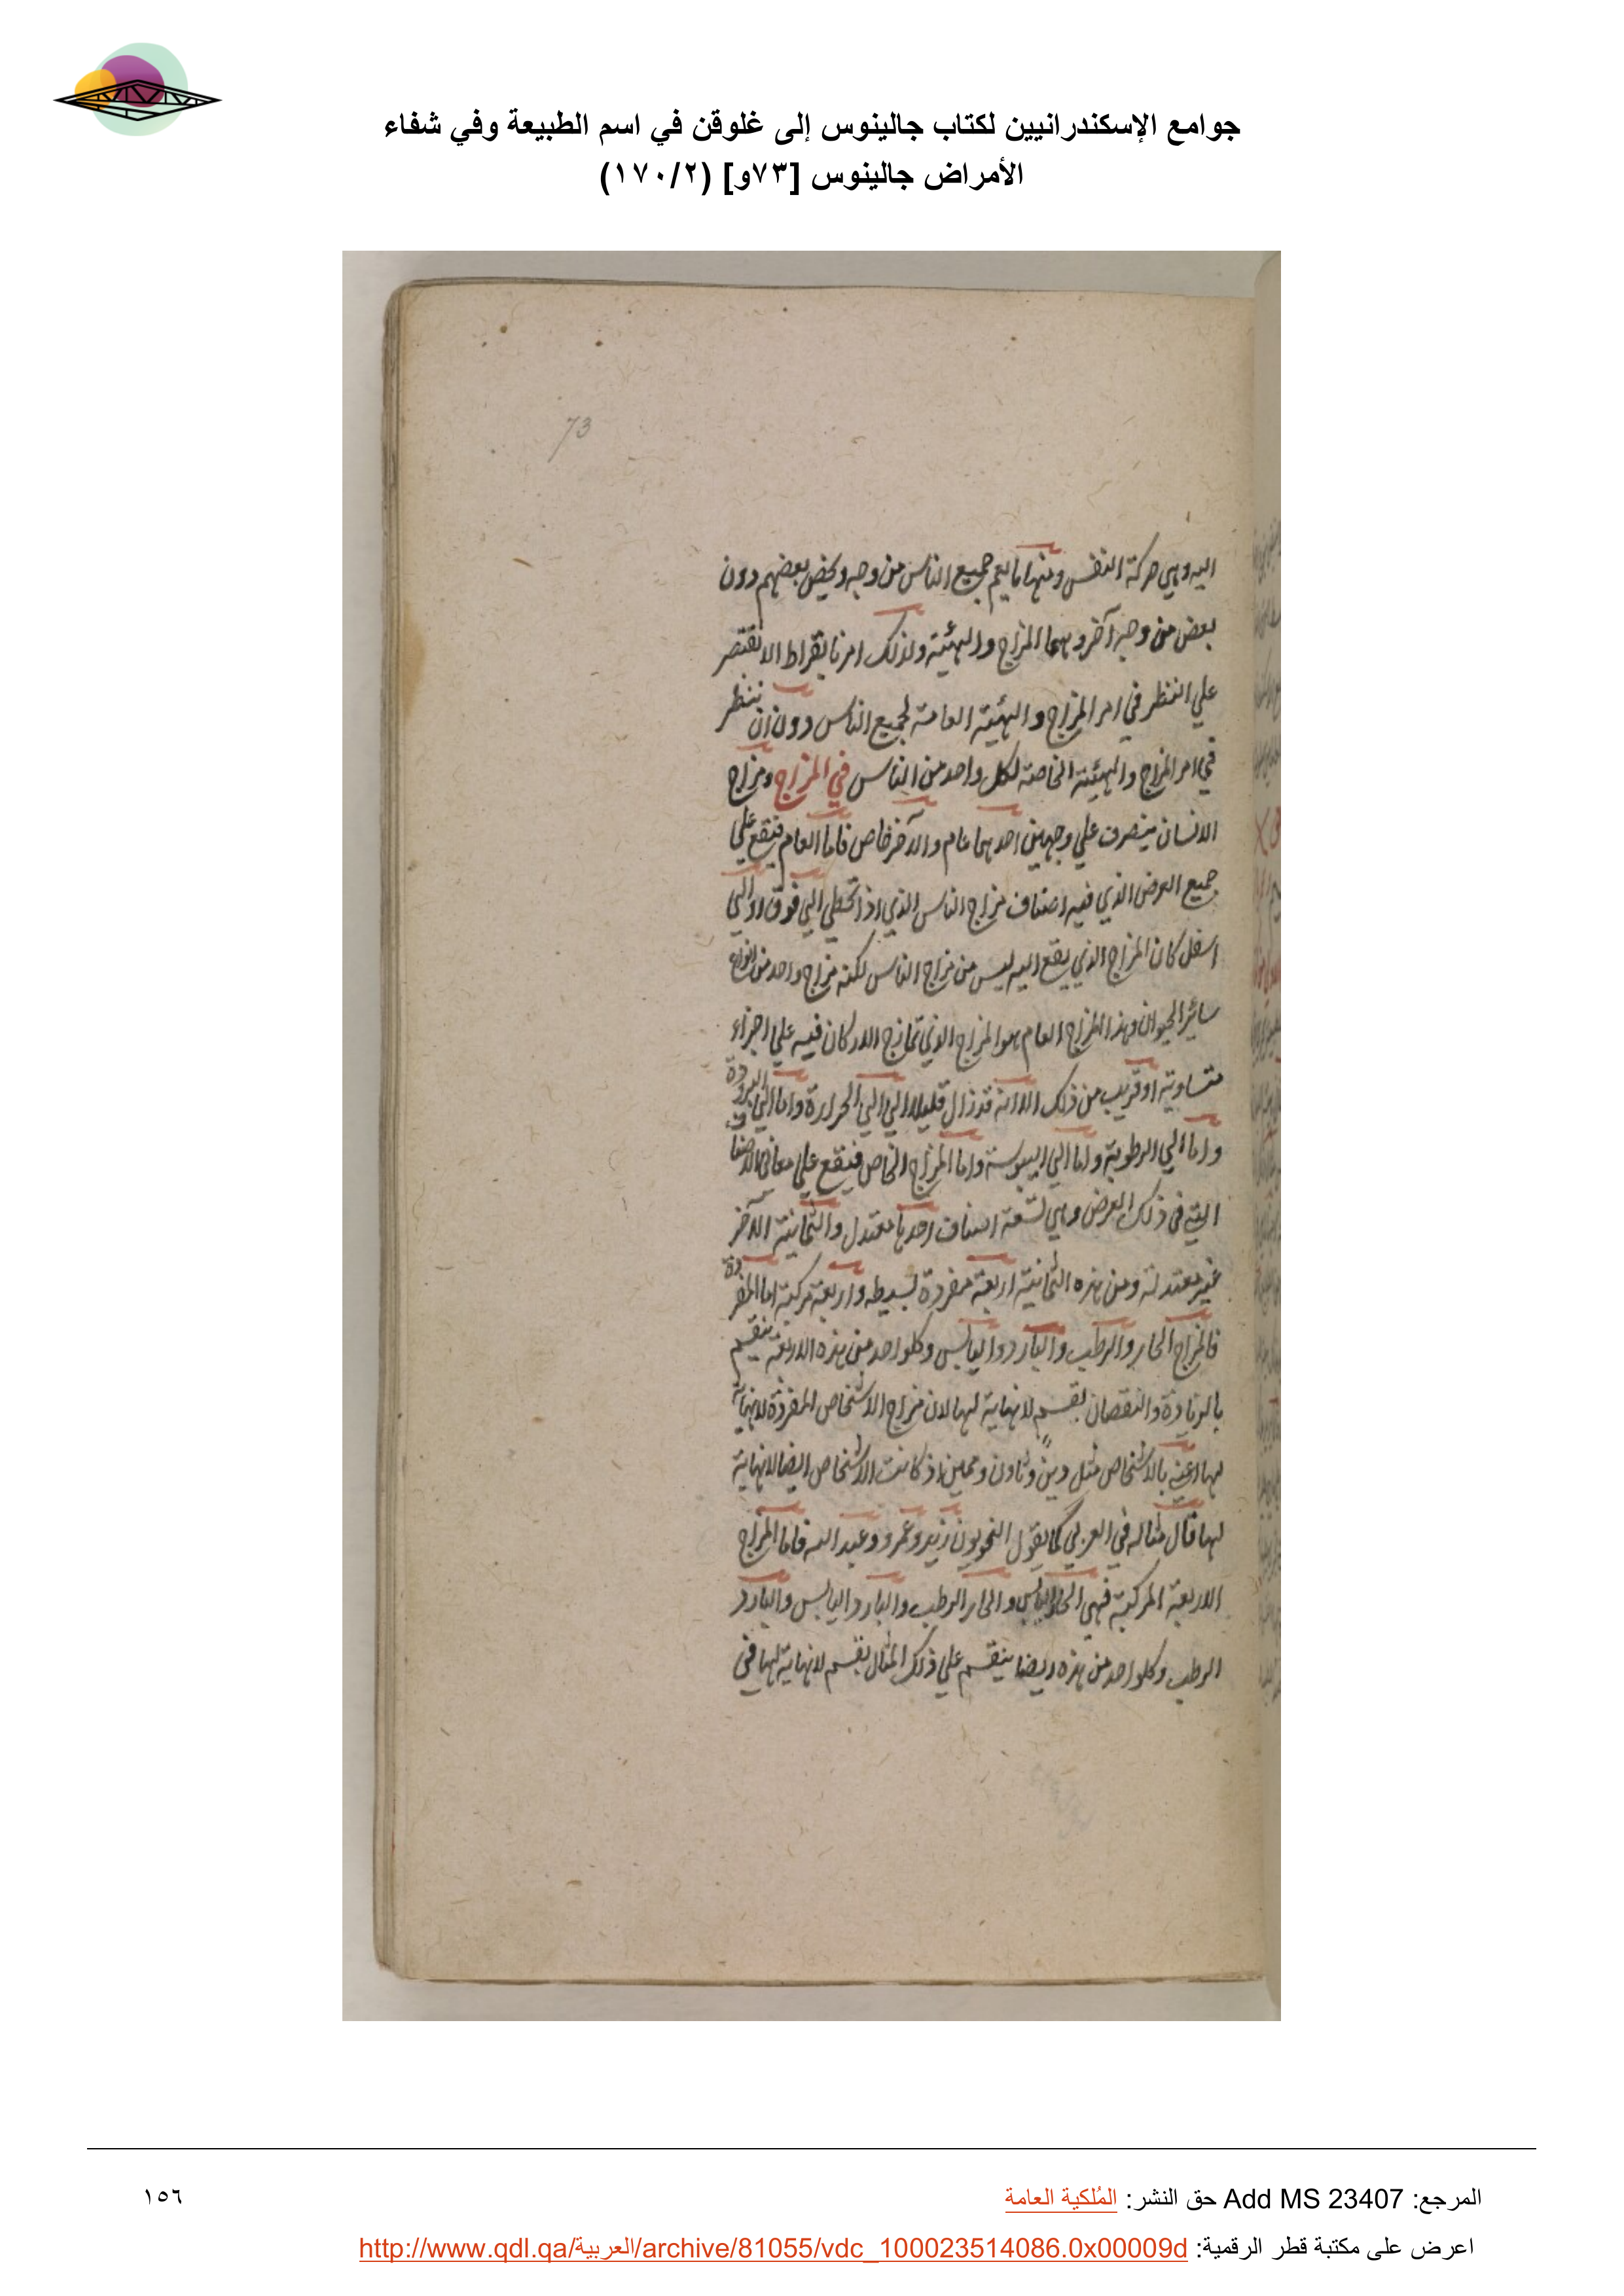 جوامع الإسكندرانيين لكتاب جالينوس إلى غلوقن في اسم الطبيعة وفي شفاء
الأمراض جالينوس [٧٣و] (١٧٠/٢)
73
اليه وهي حركة النفس ومنها ما يعم جميع الناس من وجه ويخص بعضهم دون
بعض من وجه آخر وهما المزاج والهيئة ولذلك امرنا بقراط الا نقتصر
علي النظر في امر المزاج والهيئة العامة لجميع الناس دون ان ننظر
في امر المزاج والهيئة الخاصة لكل واحد من الناس في المزاج ومزاج
الانسان يتصرف علي وجهين احدهما عام والآخر خاص فاما العام فيقع علي
جميع العرض الذي فيه اصناف مزاج الناس الذي اذا تخطي الي فوق او الي
اسفل كان المزاج الذي يقع اليه ليس من مزاج الناس لكنه مزاج واحد من انواع
سائر الحيوان وهذا المزاج العام هو المزاج الذي تمازج الاركان فيه علي اجزاء
متساوية او قريب من ذلك الا انه قد زال قليلا الي الحرارة واما الي البرودة
واما الي الرطوبة واما الي اليبوسة واما المزاج الخاص فيقع علي الاصناف
التي في ذلك العرض وهي تسعة اصناف احدها معتدل والثمانية الآخر
غير معتدلة ومن هذه الثمانية اربعة مفردة بسيطه واربعة مركبة اما المفردة
فالمزاج الحار والرطب والبارد واليابس وكلواحد من هذه الاربعة ينقسم
بالزيادة والنقصان بقسم لا نهاية لها لان مزاج الاشخاص المفردة لا نهاية
لها اعني بالاشخاص مثل دين وثاون وممين اذ كانت الاشخاص ايضا لا نهاية
لها قال مثاله في العربي كما يقول النحويون زيد وعمرو وعبد الله فاما المزاج
الاربعة المركبة فهي الحار اليابس والحار الرطب والبارد اليابس والبارد
الرطب وكلواحد من هذه ايضا ينقسم علي ذلك المثال بقسم لا نهاية لها في
المرجع: Add MS 23407 حق النشر: المُلكية العامة
١٥٦
اعرض على مكتبة قطر الرقمية: http://www.qdl.qa/العربية/archive/81055/vdc_100023514086.0x00009d